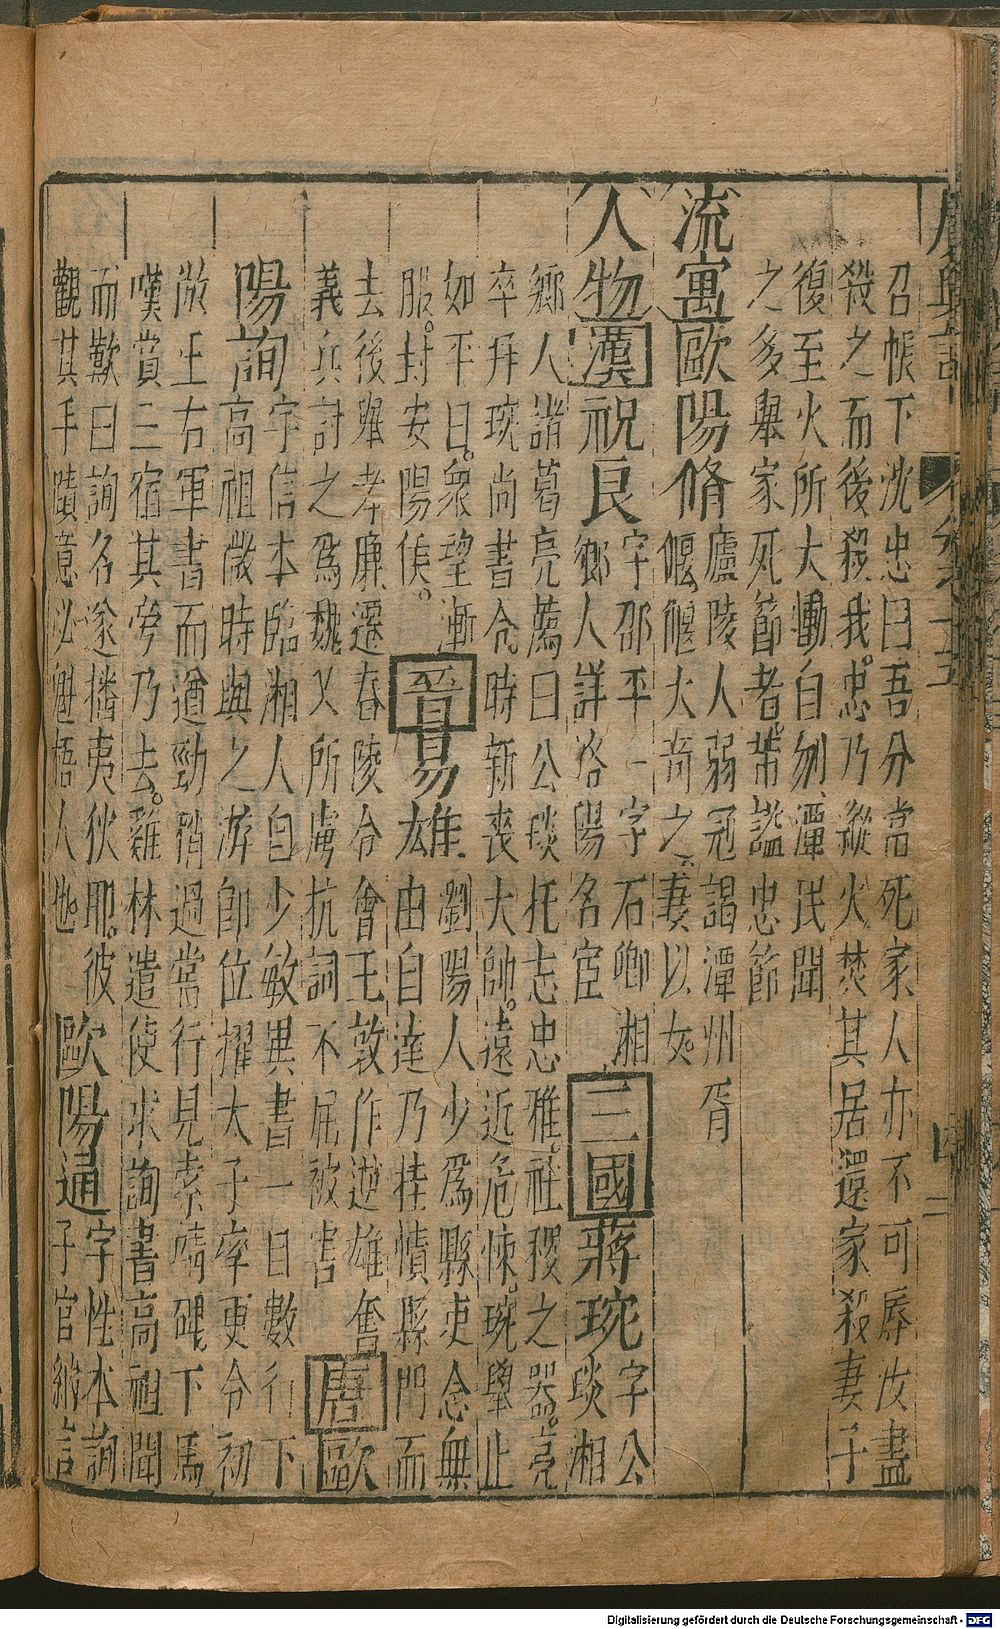 廣輿記 卷之十五 二
召帳下沈忠曰吾分當死家人亦不可辱汝盡
殺之而後殺我忠乃縱火焚其居還家殺妻子
復至火所大慟自刎潭民聞
之多舉家死節者。端謚忠節
流寓歐陽脩
廬陵人弱冠謁潭州胥
偃偃大奇之妻以女
人物漢祝良
字邵平一字石卿湘
鄉人詳洛陽名宦
三國蔣琬
字公
琰湘
鄉人諸葛亮薦曰公琰托志忠雅社稷之器。亮
卒拜琬尚書令時新喪大帥。遠近危悚。琬舉止
如平日。眾望漸
服。封安陽侯。
晉易雄
瀏陽人少為縣吏念無
由自達乃挂幘縣門而
去後舉孝廉遷舂陵令會王敦作逆雄奮
義兵討之為魏乂所虜抗詞不屈被害
唐歐
陽詢
字信本臨湘人自少敏異書一目數行下
高祖微時與之游即位擢太子率更令初
倣王右軍書而遒勁稍過嘗行見索靖碑下馬
嘆賞三宿其旁乃去。雞林遣使求詢書高祖聞
而歎曰詢名遂播夷狄耶。彼
觀其手蹟意必魁梧人也
歐陽通
字性本詢
子官納言
Digitalisierung gefördert durch die Deutsche Forschungsgemeinschaft - DFG